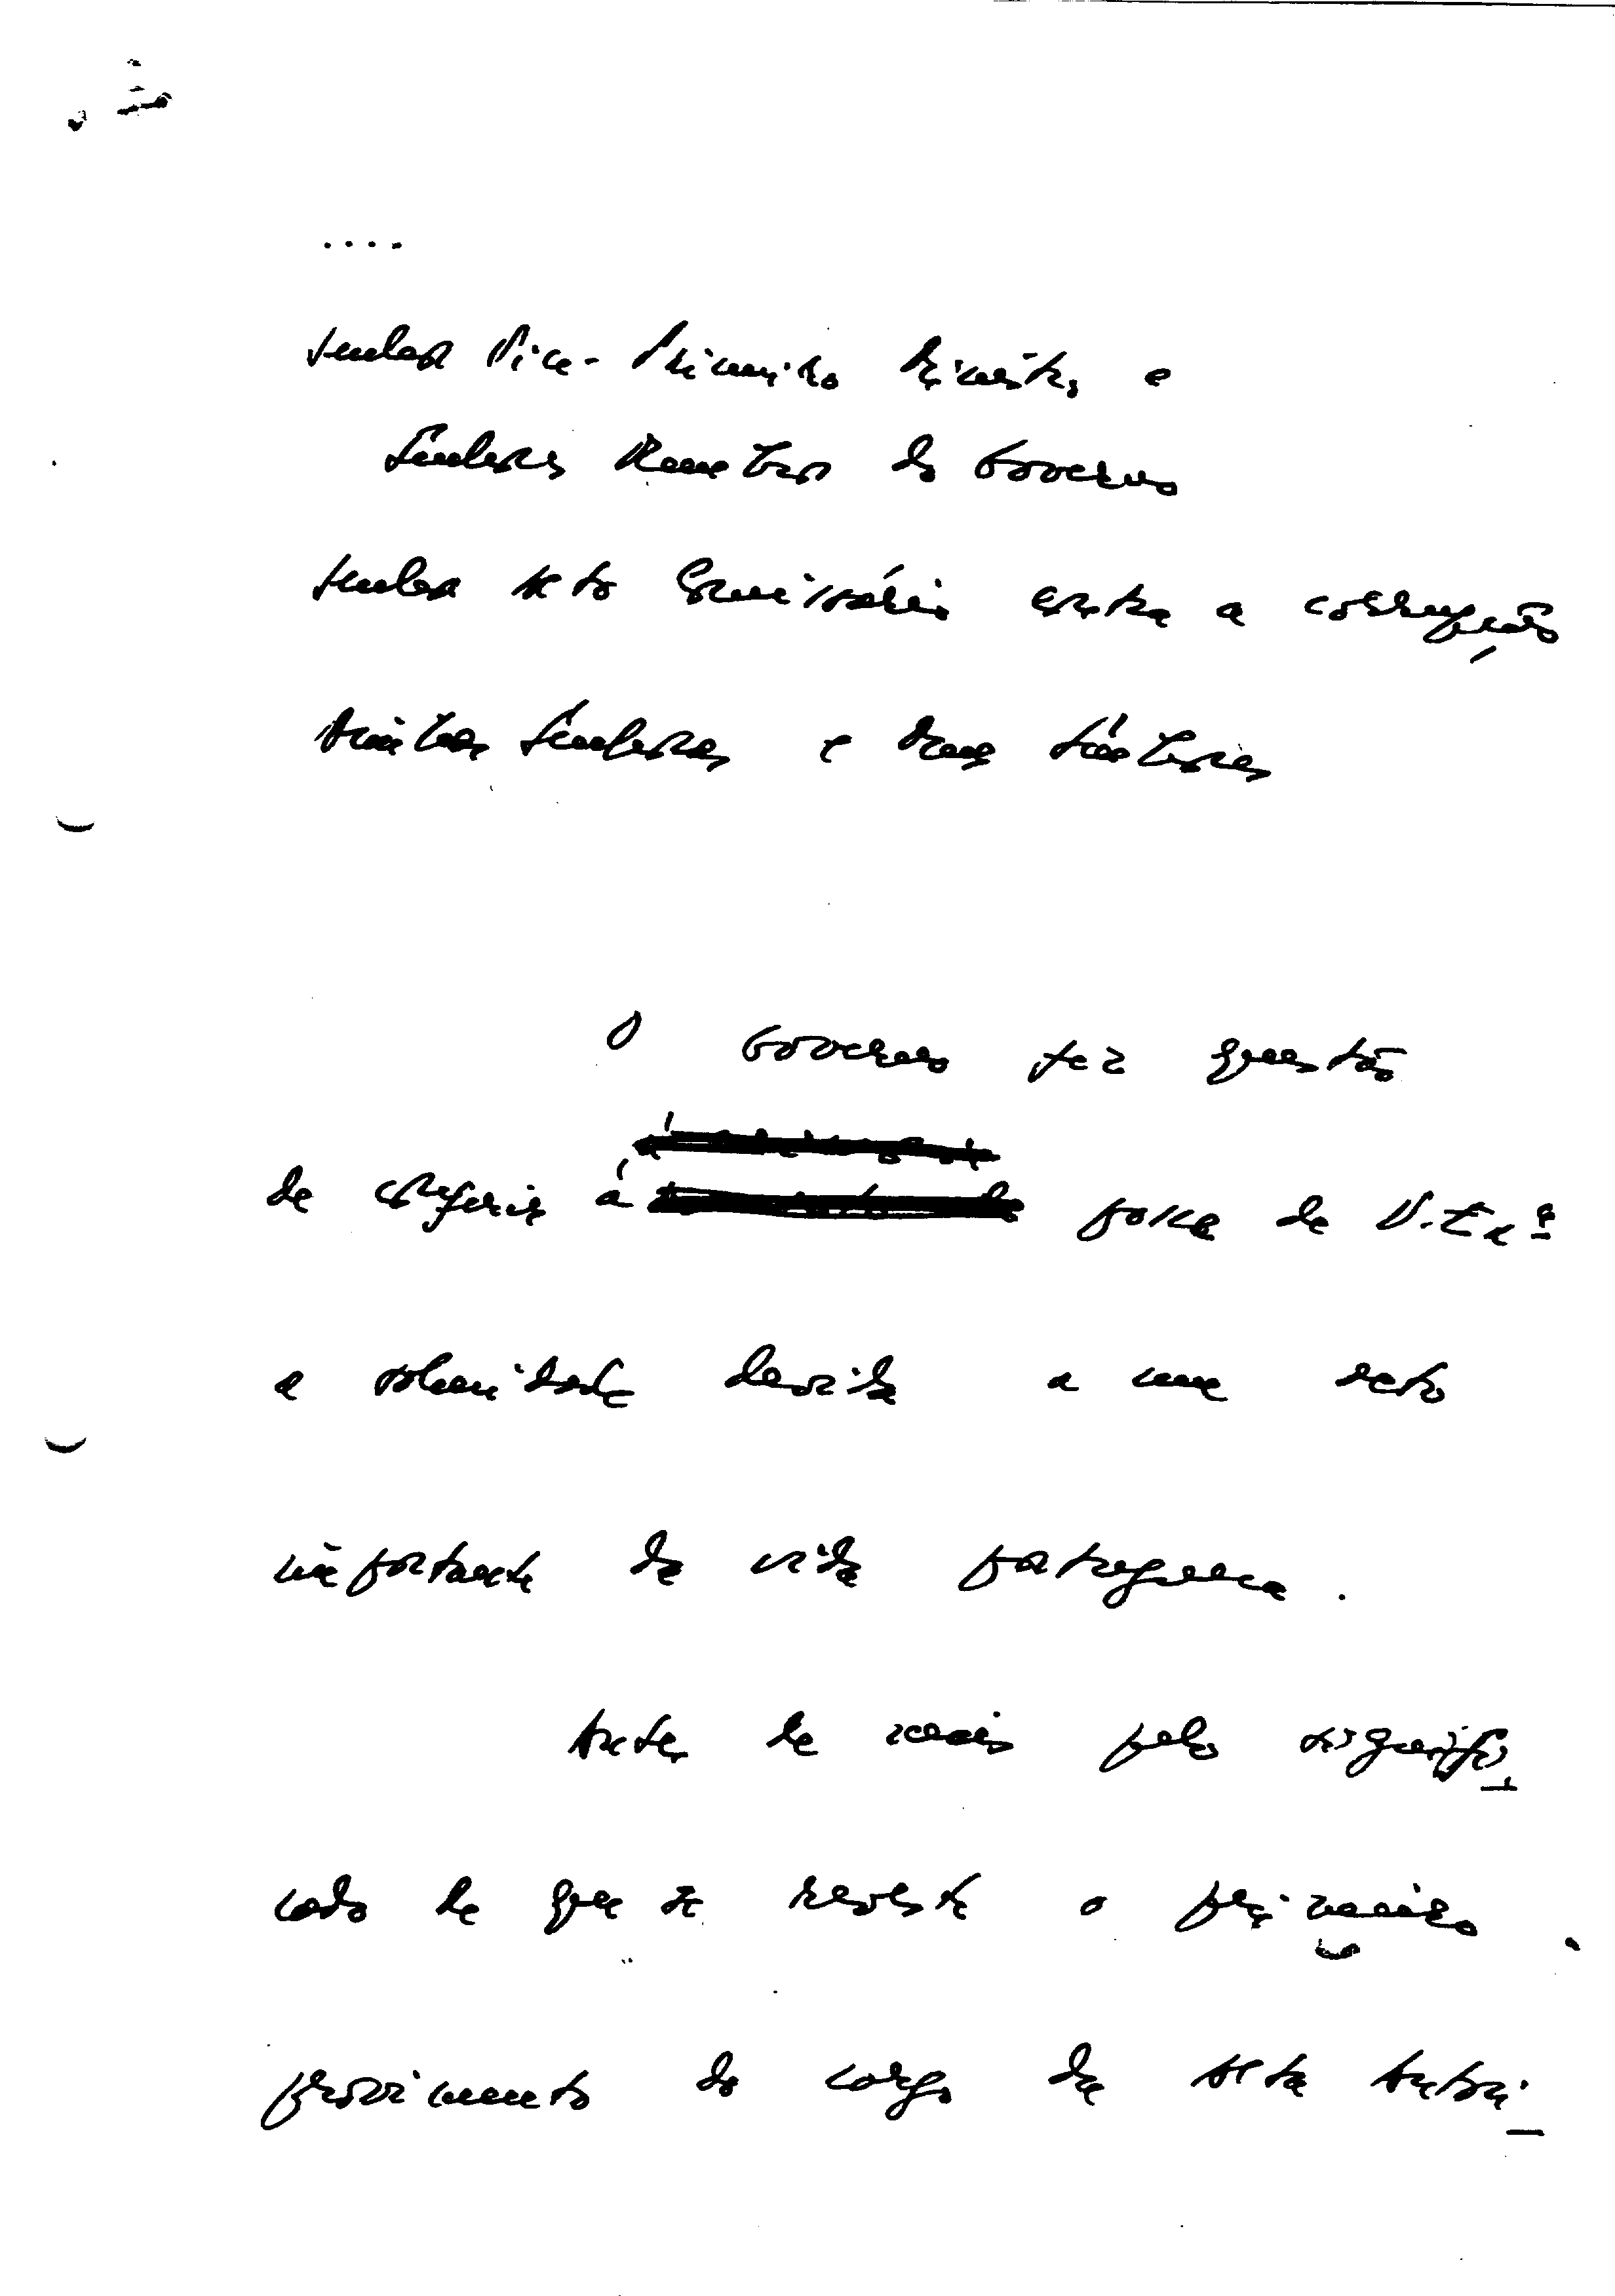 ....
Senhor Vice-Primeiro Ministro e
Senhores Membros do Governo
Senhor Alto Comissário contra a corrupção
Minhas Senhoras e Meus Senhores
O Governo fez questão
de conferir à posse de V. Exª
a solenidade devida a um acto
importante da vida portuguesa.
Antes de mais pelo signifi
cado de que se reveste o primeiro
provimento do cargo de Alta Autori